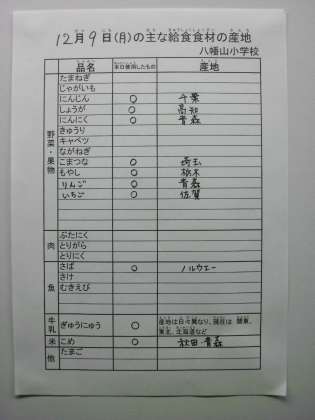 12月9日(月)の主な給食食材の産地
八幡山小学校
品名 本日使用したもの 産地
野菜・果物
たまねぎ
じゃがいも
にんじん ○ 千葉
しょうが ○ 高知
にんにく ○ 青森
きゅうり
キャベツ
ながねぎ
こまつな ○ 埼玉
もやし ○ 栃木
りんご ○ 青森
いちご ○ 佐賀
肉
ぶたにく
とりがら
とりにく
魚
さば ○ ノルウェー
さけ
むきえび
牛乳 ぎゅうにゅう ○ 産地は日々異なり、現在は 関東、
東北、北海道など
米 こめ ○ 秋田・青森
他 たまご